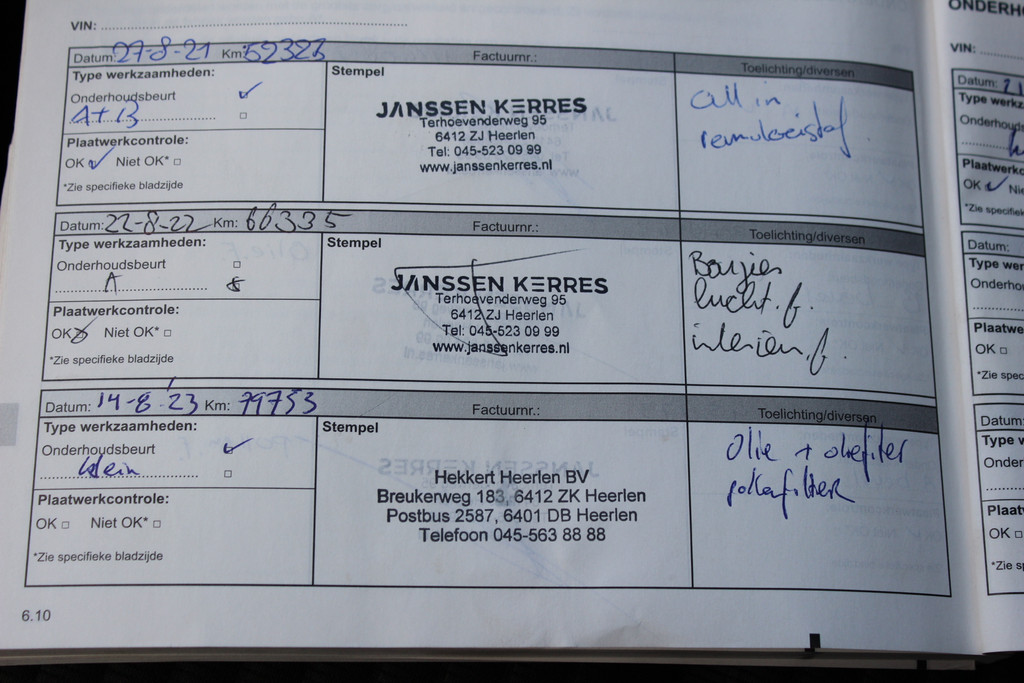 VIN:
Datum: 27-8-21 Km: 52323 Factuurnr.: Toelichting/diversen
Type werkzaamheden: Stempel
Onderhoudsbeurt
A+B
Plaatwerkcontrole:
OK Niet OK*
*Zie specifieke bladzijde
JANSSEN KERRES
Terhoevenderweg 95
6412 ZJ Heerlen
Tel: 045-523 09 99
www.janssenkerres.nl
All in
remvloeistof
Datum: 22-8-22 Km: 66335 Factuurnr.: Toelichting/diversen
Type werkzaamheden: Stempel
Onderhoudsbeurt
A
Plaatwerkcontrole:
OK Niet OK*
*Zie specifieke bladzijde
JANSSEN KERRES
Terhoevenderweg 95
6412 ZJ Heerlen
Tel: 045-523 09 99
www.janssenkerres.nl
Bougies
lucht.f.
interieur.f.
Datum: 14-8-'23 Km: 79753 Factuurnr.: Toelichting/diversen
Type werkzaamheden: Stempel
Onderhoudsbeurt
klein
Plaatwerkcontrole:
OK Niet OK*
*Zie specifieke bladzijde
Hekkert Heerlen BV
Breukerweg 183, 6412 ZK Heerlen
Postbus 2587, 6401 DB Heerlen
Telefoon 045-563 88 88
Olie + oliefilter
pollenfilter
6.10
ONDERH
VIN:
Datum: 21
Type werkz
Onderhoud
Plaatwerkc
OK Nie
*Zie specifiek
Datum:
Type wer
Onderho
Plaatwe
OK
*Zie spec
Datum:
Type w
Onder
Plaat
OK
*Zie sp